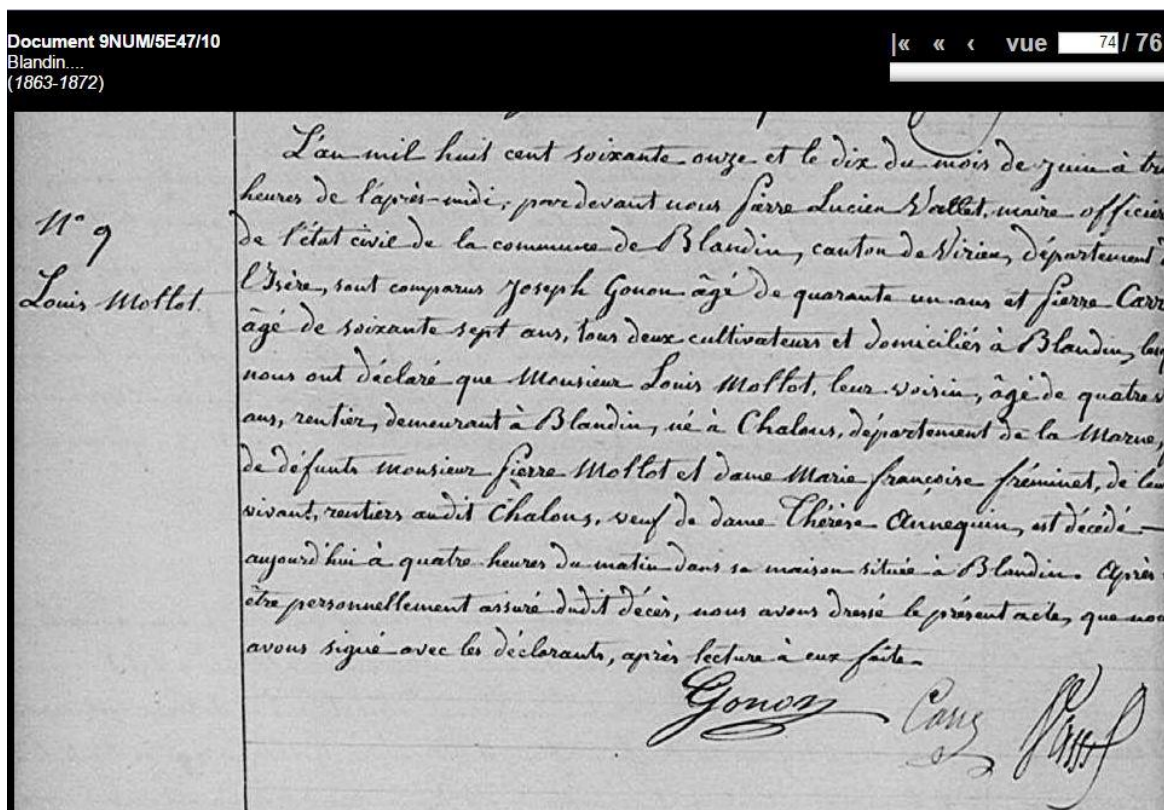 Document 9NUM/5E47/10
Blandin....
(1863-1872)
|« « ‹ vue 74 / 76
N° 9
Louis Mollot.
L'an mil huit cent soixante onze et le dix du mois de juin à
heures de l'après-midi, pardevant nous Pierre Lucien Vallet, maire officier
de l'état civil de la commune de Blandin, canton de Virieu, département
l'Isère, sont comparus Joseph Gonon âgé de quarante un ans et Pierre
âgé de soixante sept ans, tous deux cultivateurs et domiciliés à Blandin,
nous ont déclaré que Monsieur Louis Mollot, leur voisin, âgé de
ans, rentier, demeurant à Blandin, né à Chalons, département de la Marne,
de défunts monsieur Pierre Mollot et dame Marie françoise fréminet, de
vivant, rentiers audit Chalons, veuf de dame Thérèse Annequin, est décédé —
aujourd'hui à quatre heures du matin dans sa maison située à Blandin. Après
être personnellement assuré dudit décès, nous avons dressé le présent acte, que
avons signé avec les déclarants, après lecture à eux faite.
Gonon